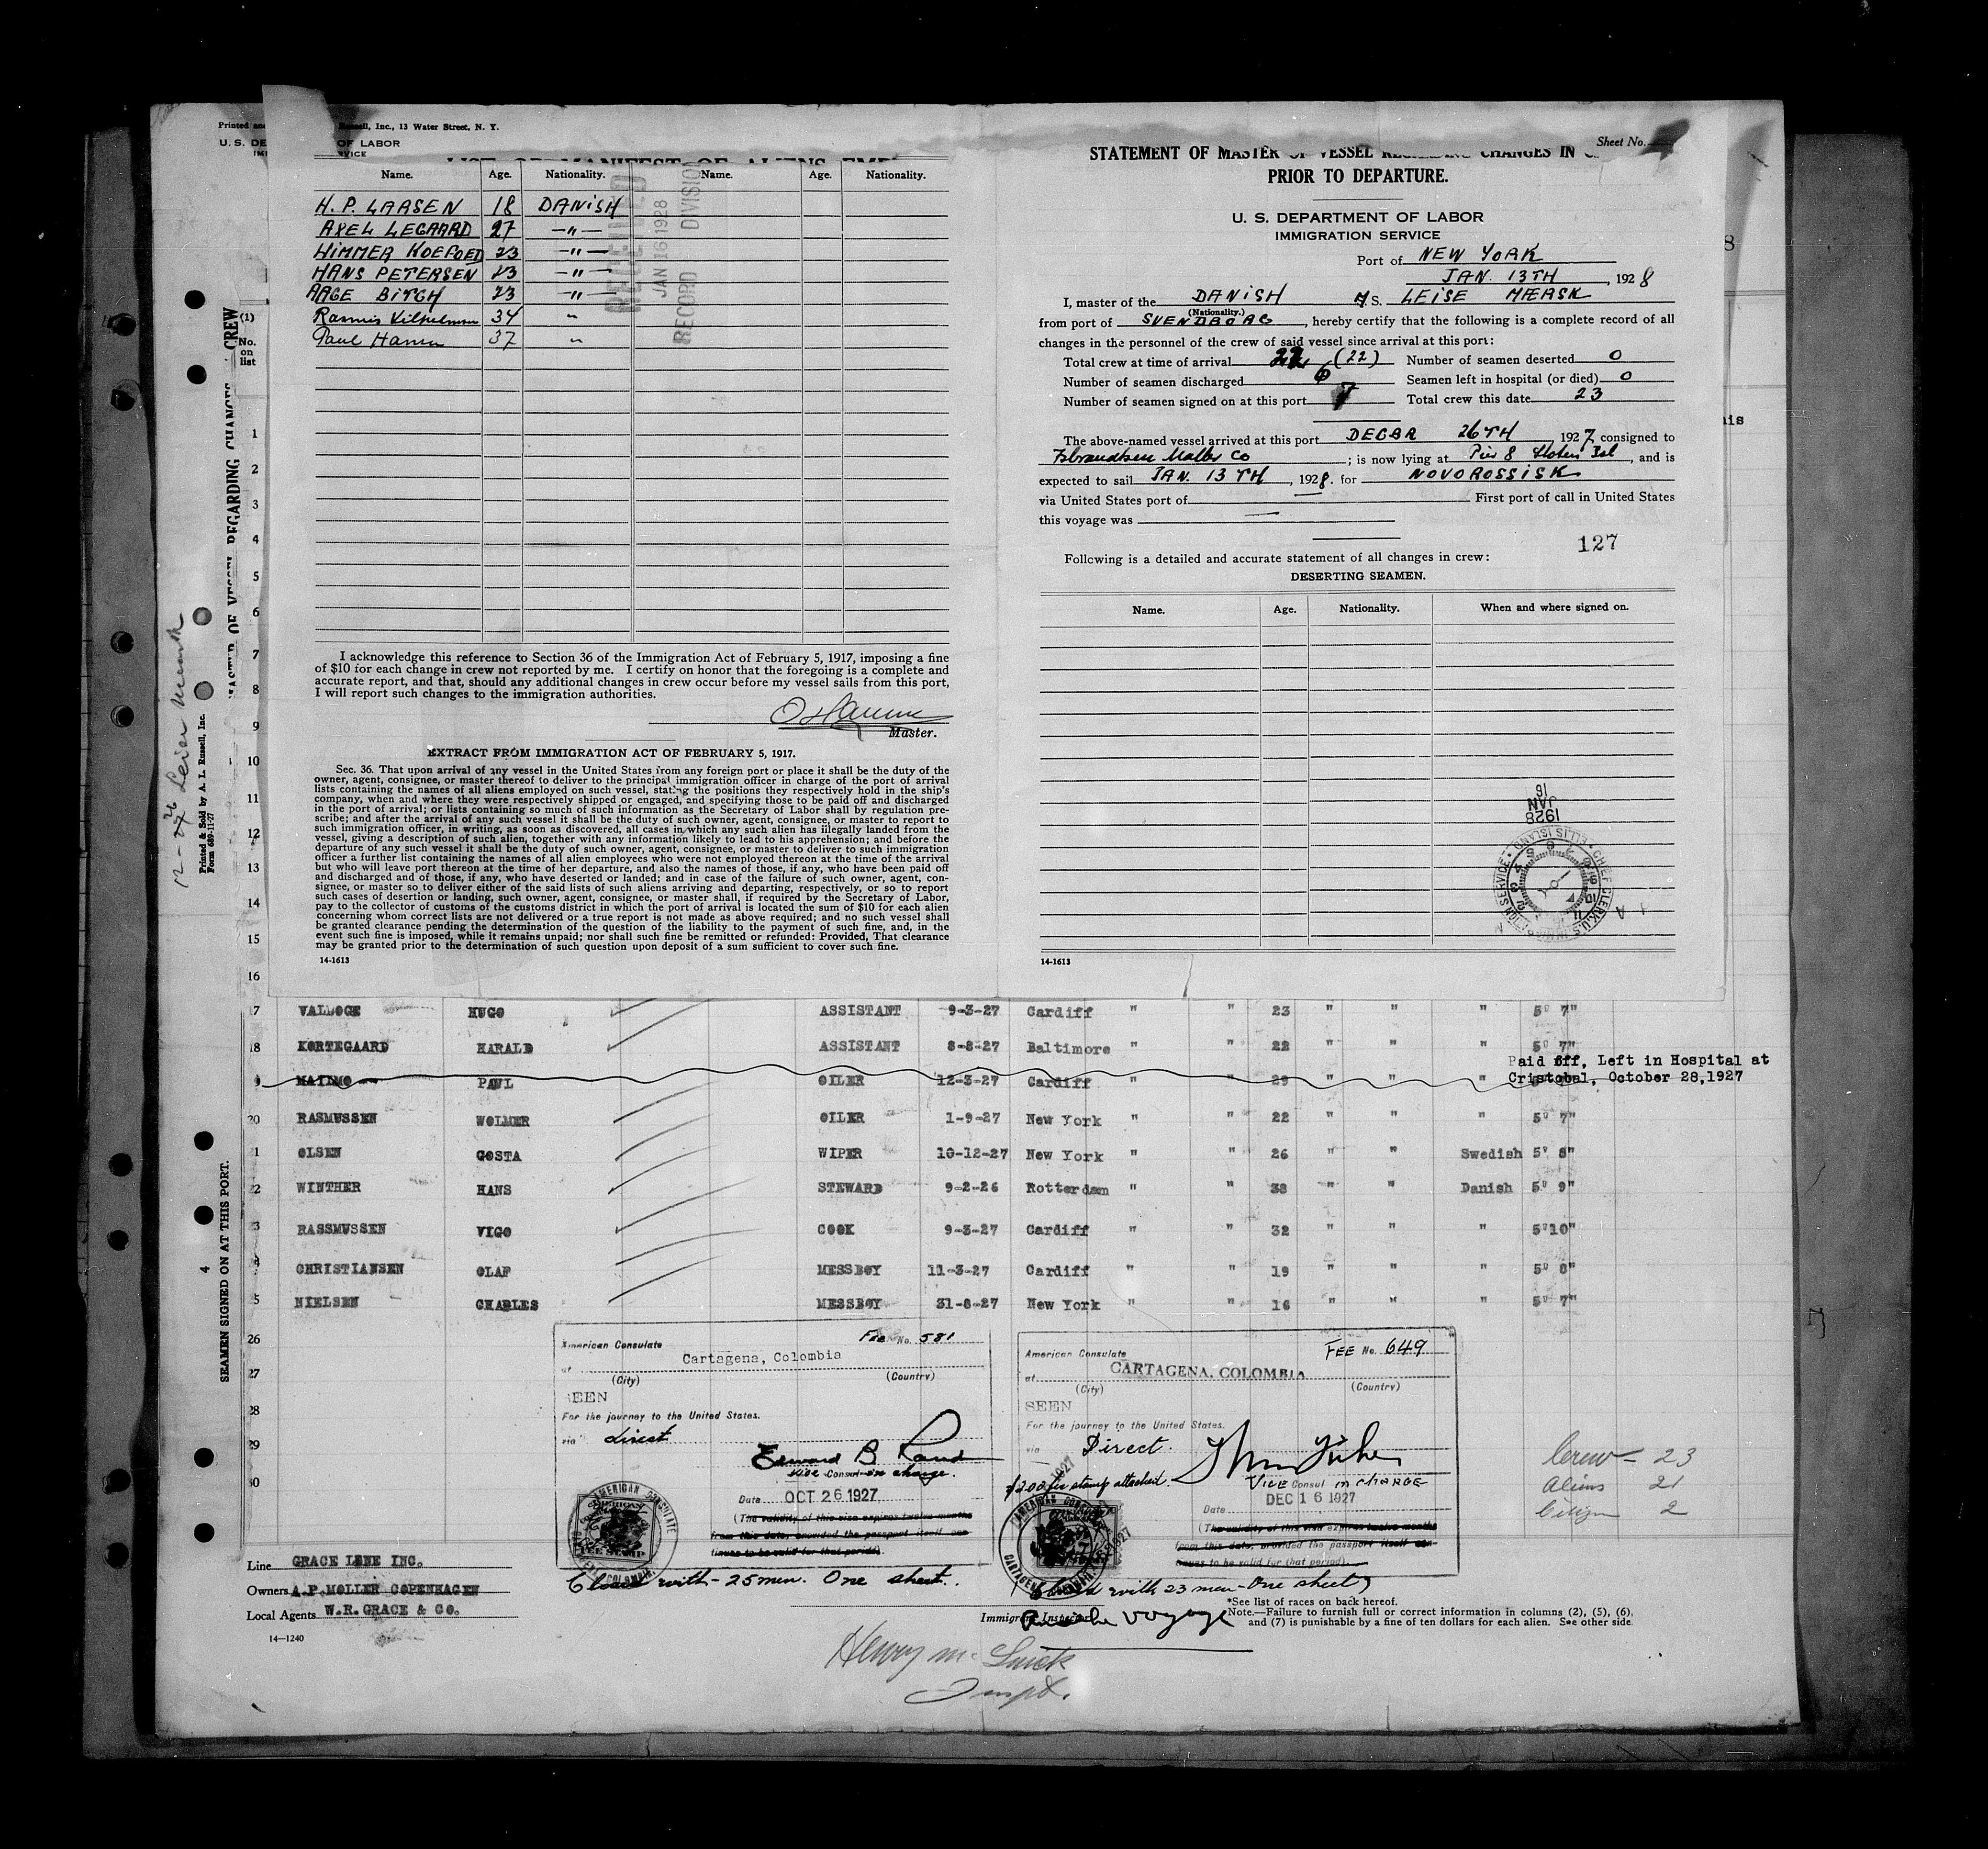 Printed and
Russell, Inc., 13 Water Street, N. Y.
U. S. DE
OF LABOR
VICE
Name. Age. Nationality. Name. Age. Nationality.
H. P. LAASEN 18 DANISH
AXEL LEGAARD 27 —"—
HIMMER KOEFOED 23 —"—
HANS PETERSEN 23 —"—
AAGE BITCH 23 —"—
Rasmus Vilhelmsen 34 "
Paul Hansen 37 "
RECEIVED
JAN 16 1928
RECORD DIVISION
I acknowledge this reference to Section 36 of the Immigration Act of February 5, 1917, imposing a fine
of $10 for each change in crew not reported by me. I certify on honor that the foregoing is a complete and
accurate report, and that, should any additional changes in crew occur before my vessel sails from this port,
I will report such changes to the immigration authorities.
Master.
EXTRACT FROM IMMIGRATION ACT OF FEBRUARY 5, 1917.
Sec. 36. That upon arrival of any vessel in the United States from any foreign port or place it shall be the duty of the
owner, agent, consignee, or master thereof to deliver to the principal immigration officer in charge of the port of arrival
lists containing the names of all aliens employed on such vessel, stating the positions they respectively hold in the ship's
company, when and where they were respectively shipped or engaged, and specifying those to be paid off and discharged
in the port of arrival; or lists containing so much of such information as the Secretary of Labor shall by regulation pre-
scribe; and after the arrival of any such vessel it shall be the duty of such owner, agent, consignee, or master to report to
such immigration officer, in writing, as soon as discovered, all cases in which any such alien has illegally landed from the
vessel, giving a description of such alien, together with any information likely to lead to his apprehension; and before the
departure of any such vessel it shall be the duty of such owner, agent, consignee, or master to deliver to such immigration
officer a further list containing the names of all alien employees who were not employed thereon at the time of the arrival
but who will leave port thereon at the time of her departure, and also the names of those, if any, who have been paid off
and discharged and of those, if any, who have deserted or landed; and in case of the failure of such owner, agent, con-
signee, or master so to deliver either of the said lists of such aliens arriving and departing, respectively, or so to report
such cases of desertion or landing, such owner, agent, consignee, or master shall, if required by the Secretary of Labor,
pay to the collector of customs of the customs district in which the port of arrival is located the sum of $10 for each alien
concerning whom correct lists are not delivered or a true report is not made as above required; and no such vessel shall
be granted clearance pending the determination of the question of the liability to the payment of such fine, and, in the
event such fine is imposed, while it remains unpaid; nor shall such fine be remitted or refunded: Provided, That clearance
may be granted prior to the determination of such question upon deposit of a sum sufficient to cover such fine.
14-1613
Sheet No.
STATEMENT OF MASTER OF VESSEL REGARDING CHANGES IN
PRIOR TO DEPARTURE.
U. S. DEPARTMENT OF LABOR
IMMIGRATION SERVICE
Port of NEW YORK
JAN. 13TH, 1928
I, master of the DANISH M.S. LEISE MÆRSK
(Nationality.)
from port of SVENDBORG, hereby certify that the following is a complete record of all
changes in the personnel of the crew of said vessel since arrival at this port:
Total crew at time of arrival 22 (22) Number of seamen deserted 0
Number of seamen discharged 6 Seamen left in hospital (or died) 0
Number of seamen signed on at this port 7 Total crew this date 23
The above-named vessel arrived at this port DECBR 26TH 1927, consigned to
Isbrandtsen Moller Co; is now lying at Pier 8 Staten Isl, and is
expected to sail JAN. 13TH, 1928. for NOVOROSSISK
via United States port of — First port of call in United States
this voyage was —
127
Following is a detailed and accurate statement of all changes in crew:
DESERTING SEAMEN.
Name. Age. Nationality. When and where signed on.
1928
JAN
16
CHIEF CLERK U.S. IMMIGRATION SERVICE ELLIS ISLAND
14-1613
(1)
No.
on
list
1
2
3
4
5
6
7
8
9
10
11
12
13
14
15
16
Printed & Sold by A. L. Russell, Inc.
Form 689-11-27
SEAMEN SIGNED ON AT THIS PORT.
4
7 VALLOGE HUGO ASSISTANT 9-3-27 Cardiff " " 23 " " " 5' 7"
18 KORTEGAARD HARALD ASSISTANT 8-8-27 Baltimore " " 22 " " " 5' 7"
Paid off, Left in Hospital at
Cristobal, October 28,1927
9 PAUL OILER 12-3-27 Cardiff " " 29 " " "
20 RASMUSSEN WOLMER OILER 1-9-27 New York " " 22 " " " 5' 7"
21 OLSEN GOSTA WIPER 10-12-27 New York " " 26 " " Swedish 5' 8"
22 WINTHER HANS STEWARD 9-2-26 Rotterdam " " 38 " " Danish 5' 9"
3 RASSMUSSEN VIGO COOK 9-3-27 Cardiff " " 32 " " " 5'10"
4 CHRISTIANSEN OLAF MESSBOY 11-3-27 Cardiff " " 19 " " " 5' 8"
5 NIELSEN CHARLES MESSBOY 31-8-27 New York " " 16 " " " 5' 7"
26
27
28
29
30
American Consulate Fee No. 581
at Cartagena, Colombia
(City) (Country)
SEEN
For the journey to the United States.
via Direct
Edward B Rand
Vice Consul in charge.
Date OCT 26 1927
(The validity of this visa expires twelve months
from this date, provided the passport itself con-
tinues to be valid for that period).
AMERICAN CONSULATE
Closed with - 25 men. One sheet.
American Consulate FEE No. 649
at CARTAGENA, COLOMBIA
(City) (Country)
SEEN
For the journey to the United States.
via Direct.
$2.00 fee stamp attached.
VICE Consul IN CHARGE
Date DEC 16 1927
(The validity of this visa expires twelve months
from this date, provided the passport itself con-
tinues to be valid for that period).
Closed with 23 men - One sheet
Immigrant Inspector
voyage
Crew - 23
Aliens 21
Citizen 2
Line GRACE LINE INC.
Owners A.P.MOLLER COPENHAGEN
Local Agents W.R.GRACE & CO.
14—1240
*See list of races on back hereof.
Note.—Failure to furnish full or correct information in columns (2), (5), (6),
and (7) is punishable by a fine of ten dollars for each alien. See other side.
Henry
Inspt.